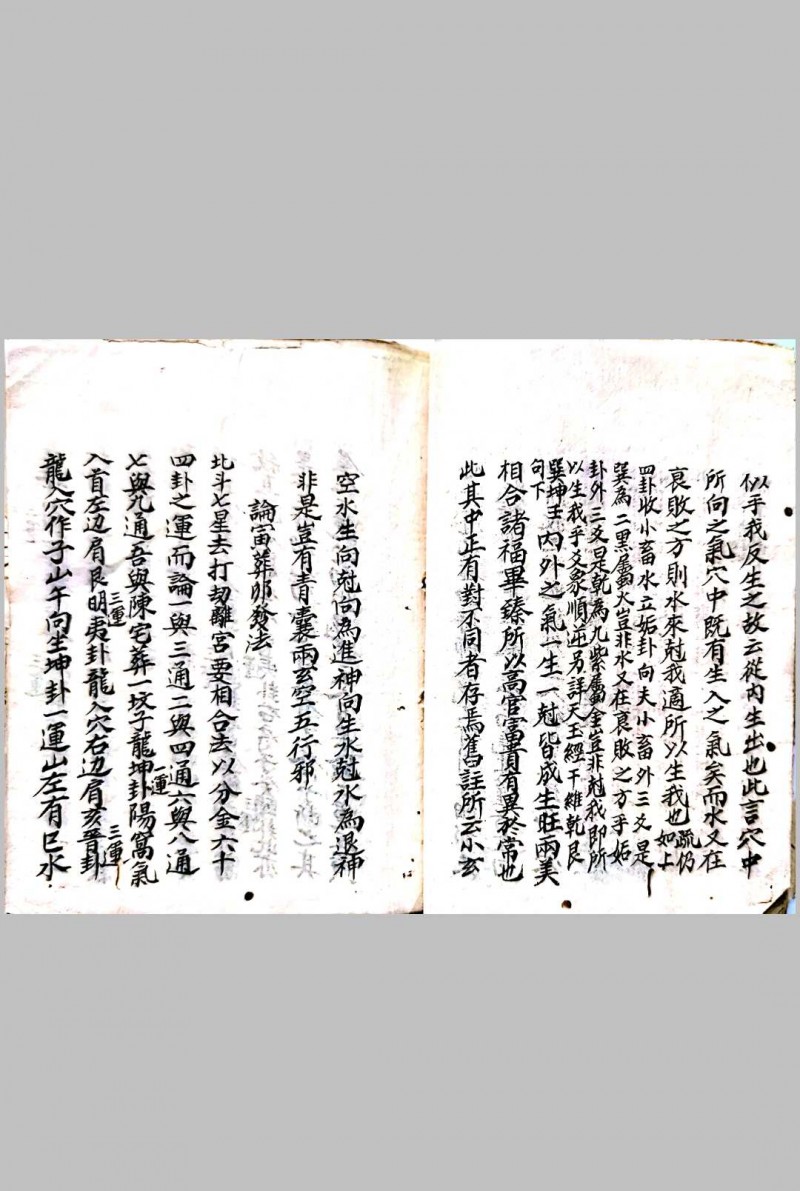 似乎我反生之故云從內生出也此言穴中
所向之氣穴中既有生入之氣矣而水又在
衰敗之方則水來尅我適所以生我也疏仍如上
四卦收小畜水立姤卦向夫小畜外三爻是
巽為二黑屬火豈非水又在衰敗之方乎姤
卦外三爻是乾為九紫屬金豈非尅我即所
以生我乎爻象順逆另詳天玉經干維乾艮
巽坤壬句下
內外之氣一生一尅皆成生旺兩美
相合諸福畢臻所以高官富貴有異於常也
此其中正有對不同者存焉舊註所云小玄
空水生向尅向為進神向生水尅水為退神
非是豈有青囊兩玄空五行邪
論寅葬卯發法
北斗七星去打刧離宮要相合法以分金六十
四卦之運而論一與三通二與四通六與八通
七與九通吾與陳宅葬一坟子龍坤卦一運陽窩氣
入首左边肩艮明夷卦三運龍入穴右边肩亥晉卦三運
龍入穴作子山午向坐坤卦一運山左有巳水